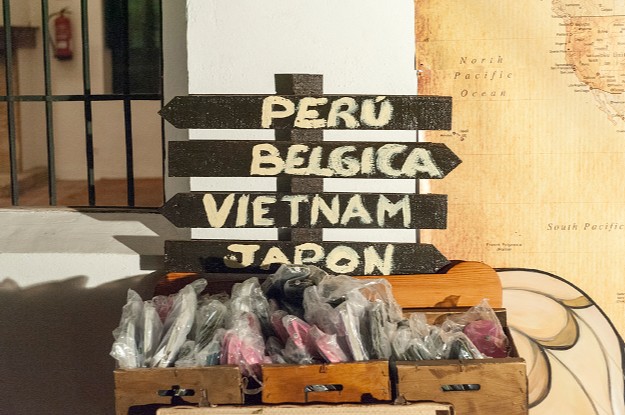 PERÚ
BELGICA
VIETNAM
JAPON
North
Pacific
Ocean
South Pacific